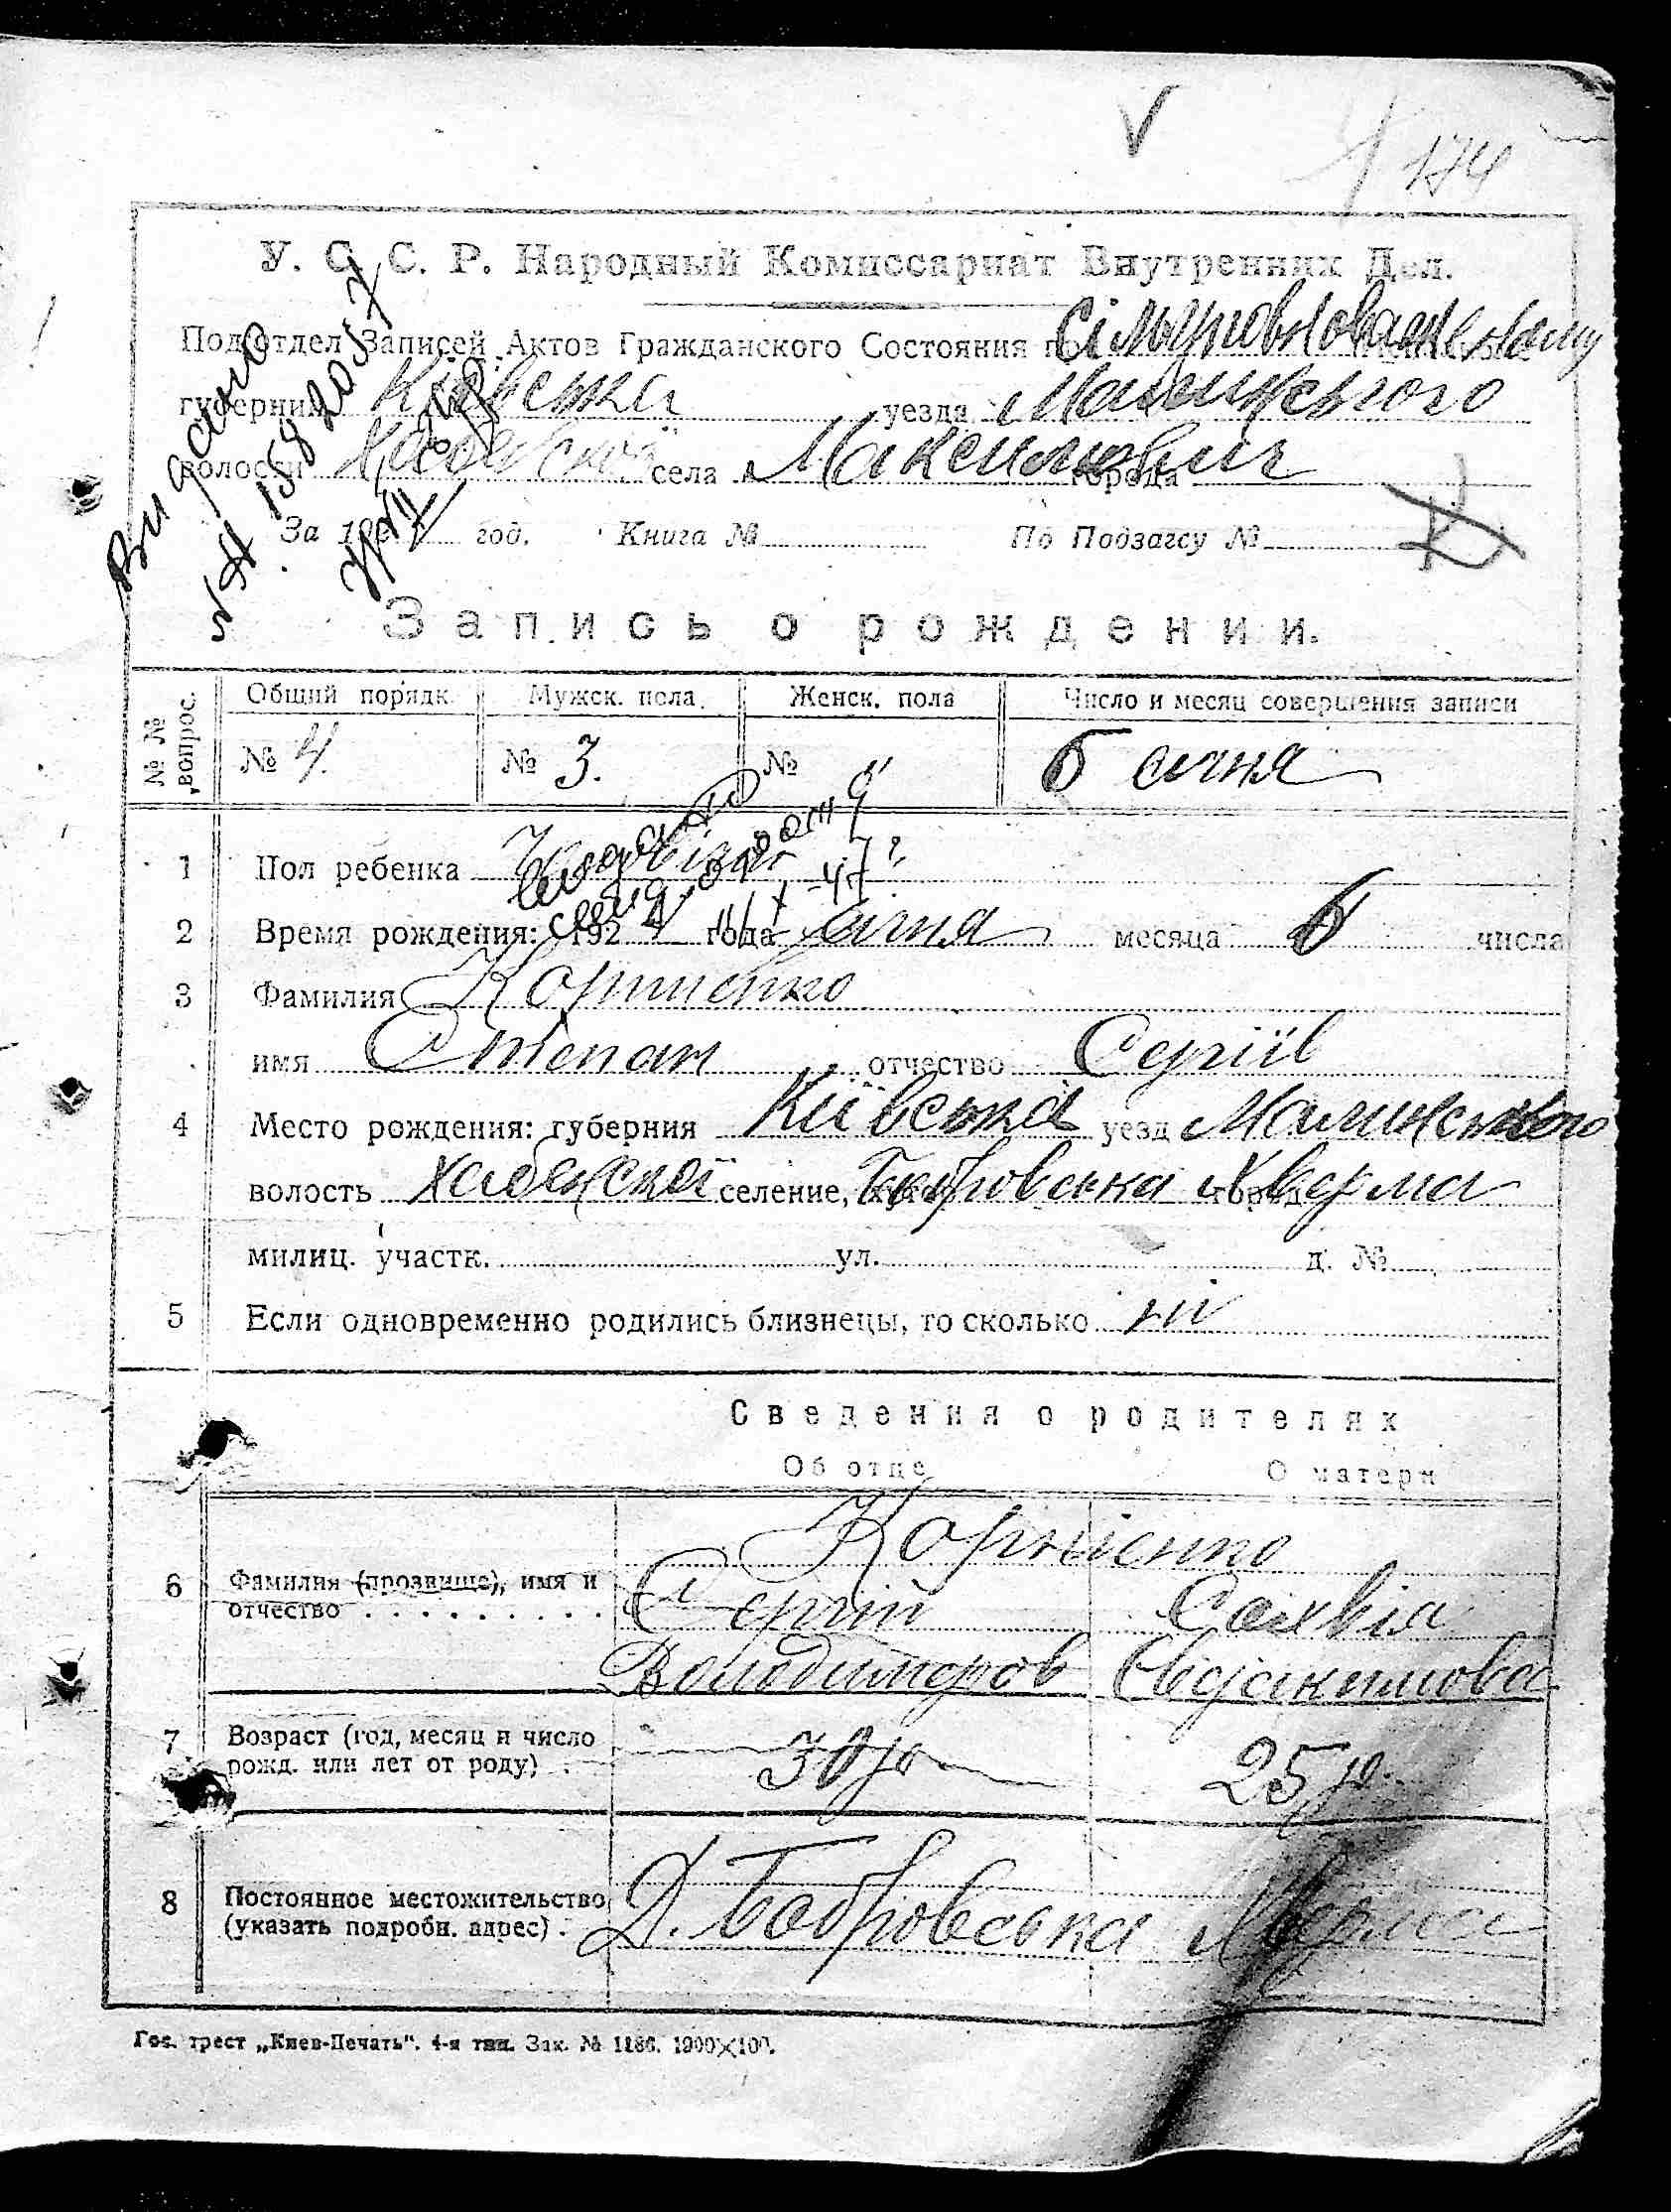 174
У. С. С. Р. Народный Комиссариат Внутренних Дел.
Подотдел Записей Актов Гражданского Состояния при
губернии Київська уезда Малинського
волости Хабенской села Максимович города
За 192 4 год. Книга № По Подзагсу №
Видано
Запись о рождении.
№№ вопрос. Общий порядк. Мужск. пола. Женск. пола Число и месяц совершения записи
№ 4. № 3. № 6 січня
1 Пол ребенка
2 Время рождения: 192 4 года січня месяца 6 числа
3 Фамилия Корнієнко
имя Степан отчество Сергіїв
4 Место рождения: губерния Київська уезд Малинського
волость Хабенскої селение, Бобровська Хверма
милиц. участк. ул. д. №
5 Если одновременно родились близнецы, то сколько ні
Сведения о родителях
Об отце О матери
Корнієнко
6 Фамилия (прозвище), имя и отчество Сергій Сахвія
Володимеров Євдакимова
7 Возраст (год, месяц и число рожд. или лет от роду) 30 р 25 р.
8 Постоянное местожительство (указать подробн. адрес) Д. Бобровська Хверма
Гос. трест „Киев-Печать". 4-я тип. Зак. № 1186. 1900×100.